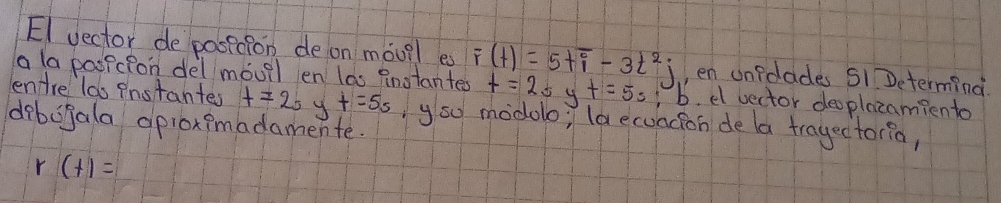 El vector de posición de on móvil es r̄(t) = 5t ī - 3t² j, en unidades SI. Determina.
a la posición del móvil en los instantes t = 2s y t = 5s; b. el vector desplazamiento
entre los instantes t = 2s y t = 5s, y so módolo; la ecuación de la trayectoria,
dibújala aproximadamente.
r (t) =